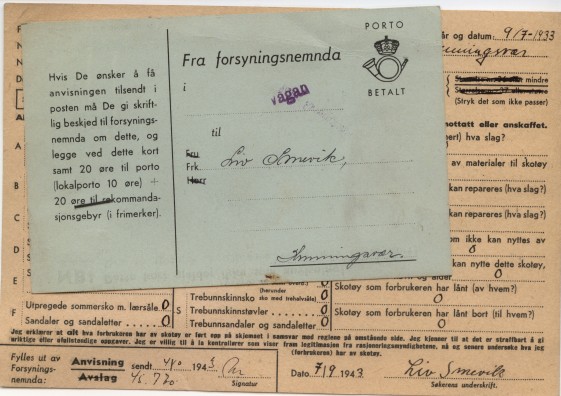 Hvis De ønsker å få
anvisningen tilsendt i
posten må De gi skrift-
lig beskjed til forsynings-
nemnda om dette, og
legge ved dette kort
samt 20 øre til porto
(lokalporto 10 øre) +
20 øre til rekommanda-
sjonsgebyr (i frimerker).
PORTO
BETALT
Fra forsyningsnemnda
i
vågan
til
Fru
Frk. Liv Smevik,
Herr
år og datum: 9/7-1933
mindre
(Stryk det som ikke passer)
mottatt eller anskaffet.
hva slag?
av materialer til skotøy
kan repareres (hva slag?)
kan repareres (hva slag?)
om ikke kan nyttes av
0
kan nytte dette skotøy,
0
A
B
C
D
E
F
S
Utpregede sommersko m. lærsåle 0
Sandaler og sandaletter 0
(herunder
Trebunnskinnsko sko med trehalvsåle) 0
Trebunnstøvler 0
Trebunnsandaletter 0
Skotøy som forbrukeren har lånt (av hvem?)
0
Skotøy som forbrukeren har lånt bort (til hvem?)
0
Jeg erklærer at alt hva forbrukeren har av skotøy er ført opp på skjemaet i samsvar med reglene på omstående side. Jeg kjenner til at det er straffbart å gi
uriktige eller ufullstendige oppgaver. Jeg er villig til å la kontrollører som viser fram legitimasjon fra rasjoneringsmyndighetene, nå og senere undersøke hva jeg
(forbrukeren) har av skotøy.
Fylles ut av
Forsynings-
nemnda:
Anvisning
Avslag
sendt
194
Signatur
Dato 7/9 1943
Liv Smevik
Søkerens underskrift.